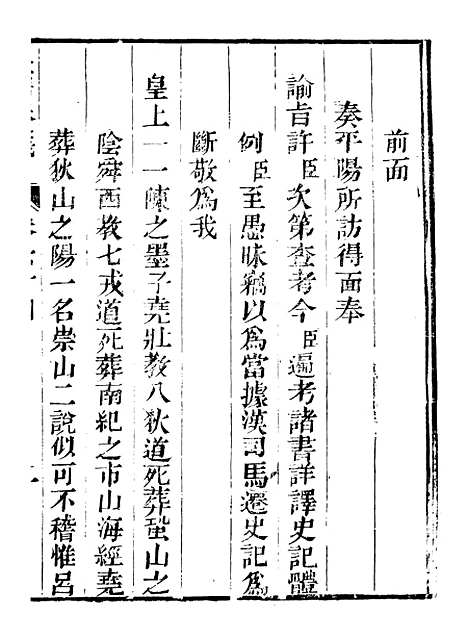 前面
奏平陽所訪得面奉
諭旨許臣次第查考今臣遍考諸書詳譯史記體
例臣至愚昧竊以爲當據漢司馬遷史記爲
斷敬爲我
皇上一一陳之墨子堯北教八狄道死葬蛩山之
陰舜西教七戎道死葬南紀之市山海經堯
葬狄山之陽一名崇山二說似可不稽惟呂